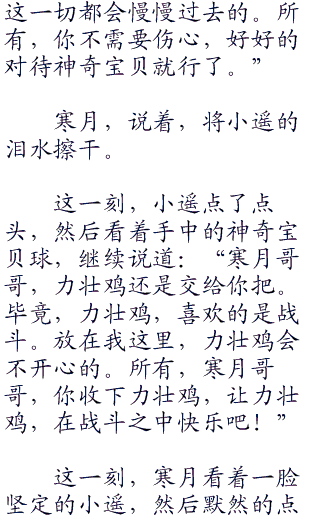 这一切都会慢慢过去的。所
有，你不需要伤心，好好的
对待神奇宝贝就行了。”
寒月，说着，将小遥的
泪水擦干。
这一刻，小遥点了点
头，然后看着手中的神奇宝
贝球，继续说道：“寒月哥
哥，力壮鸡还是交给你把。
毕竟，力壮鸡，喜欢的是战
斗。放在我这里，力壮鸡会
不开心的。所有，寒月哥
哥，你收下力壮鸡，让力壮
鸡，在战斗之中快乐吧！”
这一刻，寒月看着一脸
坚定的小遥，然后默然的点